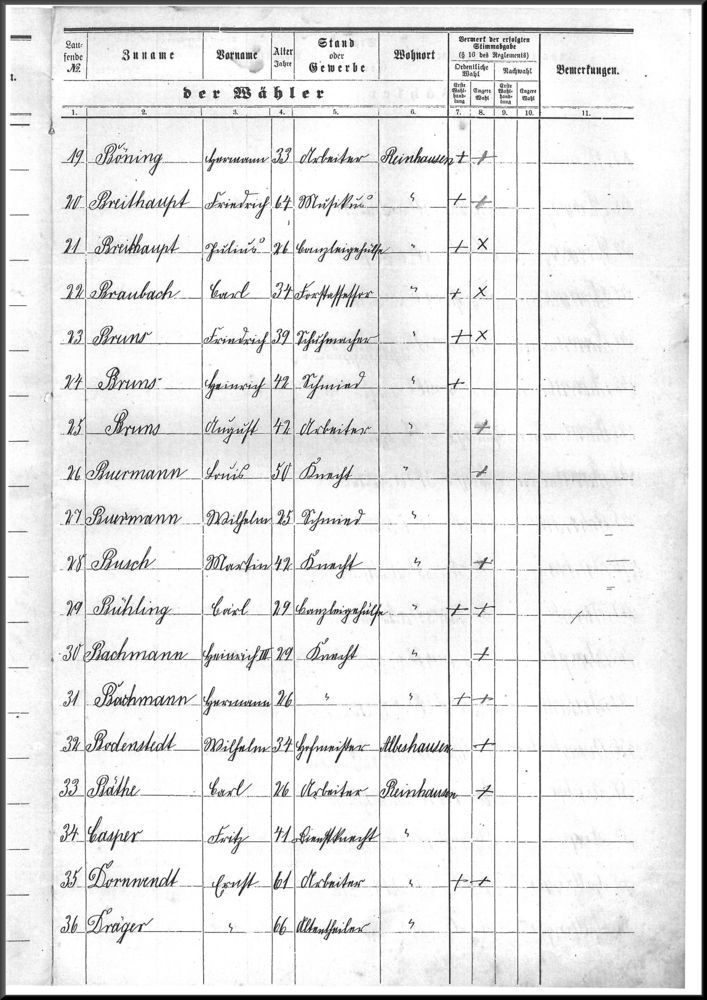 t.
Vermerk der erfolgten
Stimmabgabe
(§ 16 des Reglements)
Lau-
fende
№.
Zuname
Vorname
Alter
Jahre
Stand
oder
Gewerbe
Wohnort
Ordentliche
Wahl
Nachwahl
Bemerkungen.
der Wähler
Erste
Wahl-
hand-
lung
Engere
Wahl
Erste
Wahl-
hand-
lung
Engere
Wahl
1. 2. 3. 4. 5. 6. 7. 8. 9. 10. 11.
19 Böning Hermann 33 Arbeiter Reinhausen + +
20 Breithaupt Friedrich 64 Musikus " + +
21 Breithaupt Julius 26 Canzleigehülfe " + x
22 Braubach Carl 34 Forstassessor " + x
23 Bruns Friedrich 39 Schuhmacher " + x
24 Bruns Heinrich 42 Schmied " +
25 Bruns August 42 Arbeiter " +
26 Buermann Louis 50 Knecht " +
27 Buermann Wilhelm 25 Schmied "
28 Busch Martin 42 Knecht " +
29 Bühling Carl 29 Canzleigehülfe " + +
30 Bachmann Heinrich III 29 Knecht " +
31 Bachmann Hermann 26 " " + +
32 Bodenstedt Wilhelm 34 Hofmeister Albeshausen +
33 Bäthe Carl 26 Arbeiter Reinhausen +
34 Casper Fritz 41 Dienstknecht "
35 Dornwendt Ernst 61 Arbeiter " + +
36 Dräger " 66 Altentheiler "